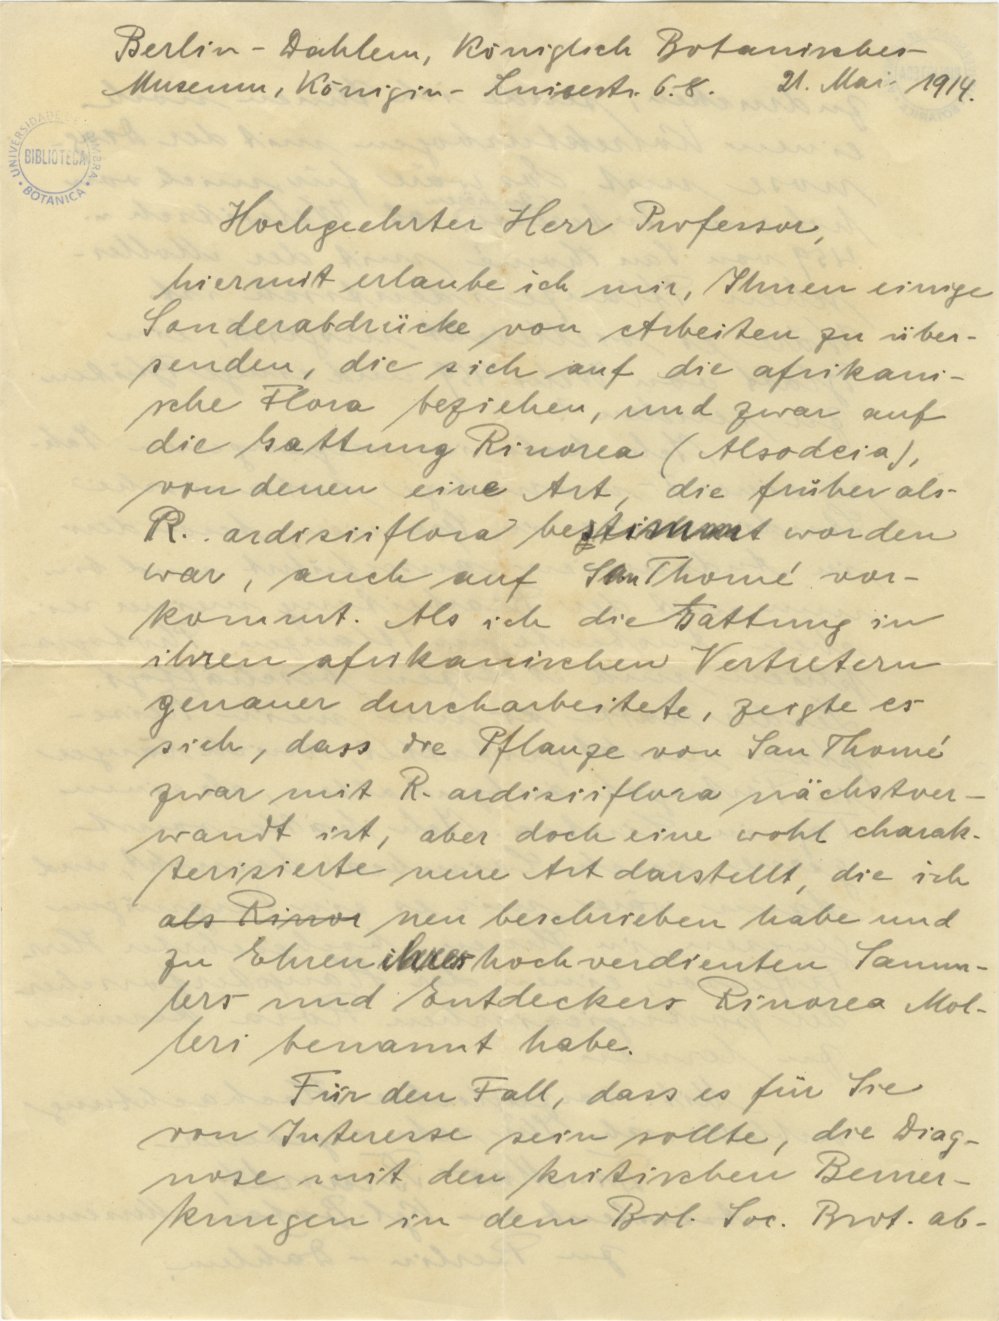 Berlin-Dahlem, Königlich Botanisches
Museum, Königin-Luisestr. 6-8. 21. Mai 1914.
UNIVERSIDADE
BIBLIOTECA
BOTANICA
Hochgeehrter Herr Professor,
hiermit erlaube ich mir, Ihnen einige
Sonderabdrücke von Arbeiten zu über-
senden, die sich auf die afrikani-
sche Flora beziehen, und zwar auf
die Gattung Rinorea (Alsodeia),
von denen eine Art, die früher als
R. ardisiiflora bestimmt worden
war, auch auf San Thomé vor-
kommt. Als ich die Gattung in
ihren afrikanischen Vertretern
genauer durcharbeitete, zeigte es
sich, dass die Pflanze von San Thomé
zwar mit R. ardisiiflora nächstver-
wandt ist, aber doch eine wohl charak-
terisierte neue Art darstellt, die ich
als Rinor neu beschrieben habe und
zu Ehren ihres hochverdienten Samm-
lers und Entdeckers Rinorea Mol-
leri benannt habe.
Für den Fall, dass es für Sie
von Interesse sein sollte, die Diag-
nose mit den kritischen Bemer-
kungen in dem Bol. Soc. Brot. ab-